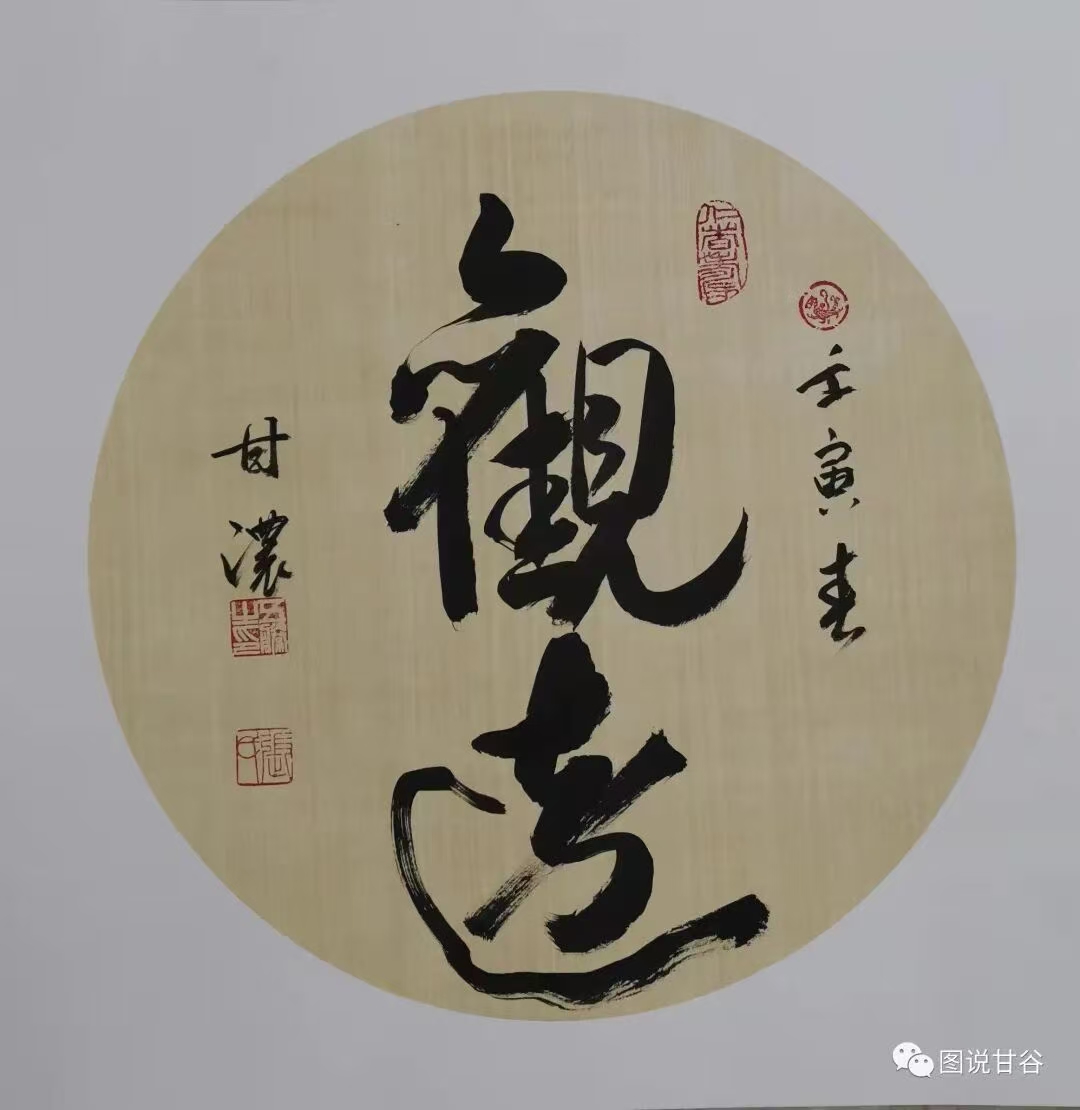 壬寅春
觀遠
甘濃
图说甘谷